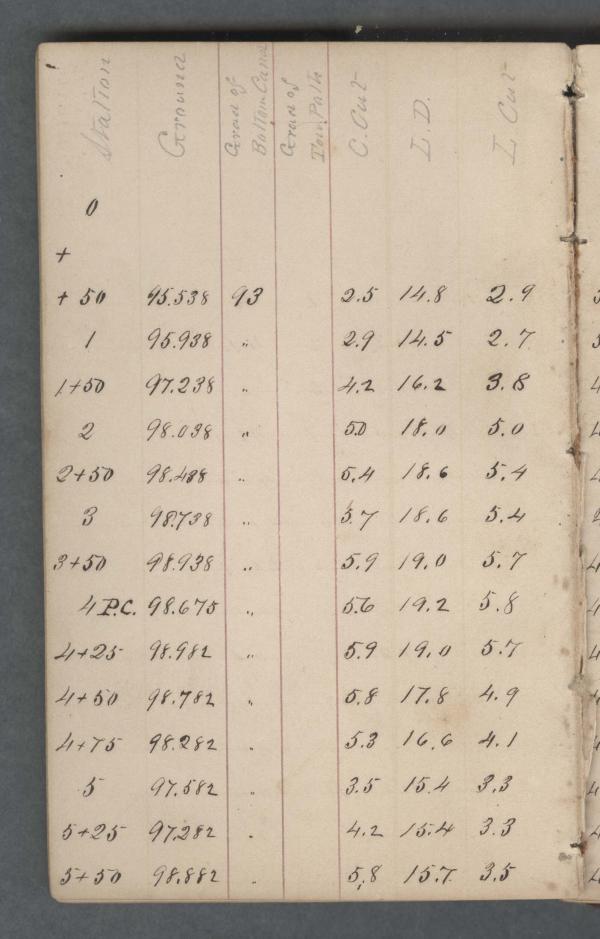 Station Ground Grad of Bottom Canal Grad of Tow Path C. Cut L. D. L. Cut
0
+
+ 50 95.538 93 2.5 14.8 2.9
1 95.938 " 2.9 14.5 2.7
1+50 97.238 " 4.2 16.2 3.8
2 98.038 " 5.0 18.0 5.0
2+50 98.488 " 5.4 18.6 5.4
3 98.738 " 5.7 18.6 5.4
3+50 98.938 " 5.9 19.0 5.7
4 P.C. 98.675 " 5.6 19.2 5.8
4+25 98.982 " 5.9 19.0 5.7
4+50 98.782 " 5.8 17.8 4.9
4+75 98.282 " 5.3 16.6 4.1
5 97.582 " 3.5 15.4 3.3
5+25 97.282 " 4.2 15.4 3.3
5+50 98.882 " 5.8 15.7 3.5